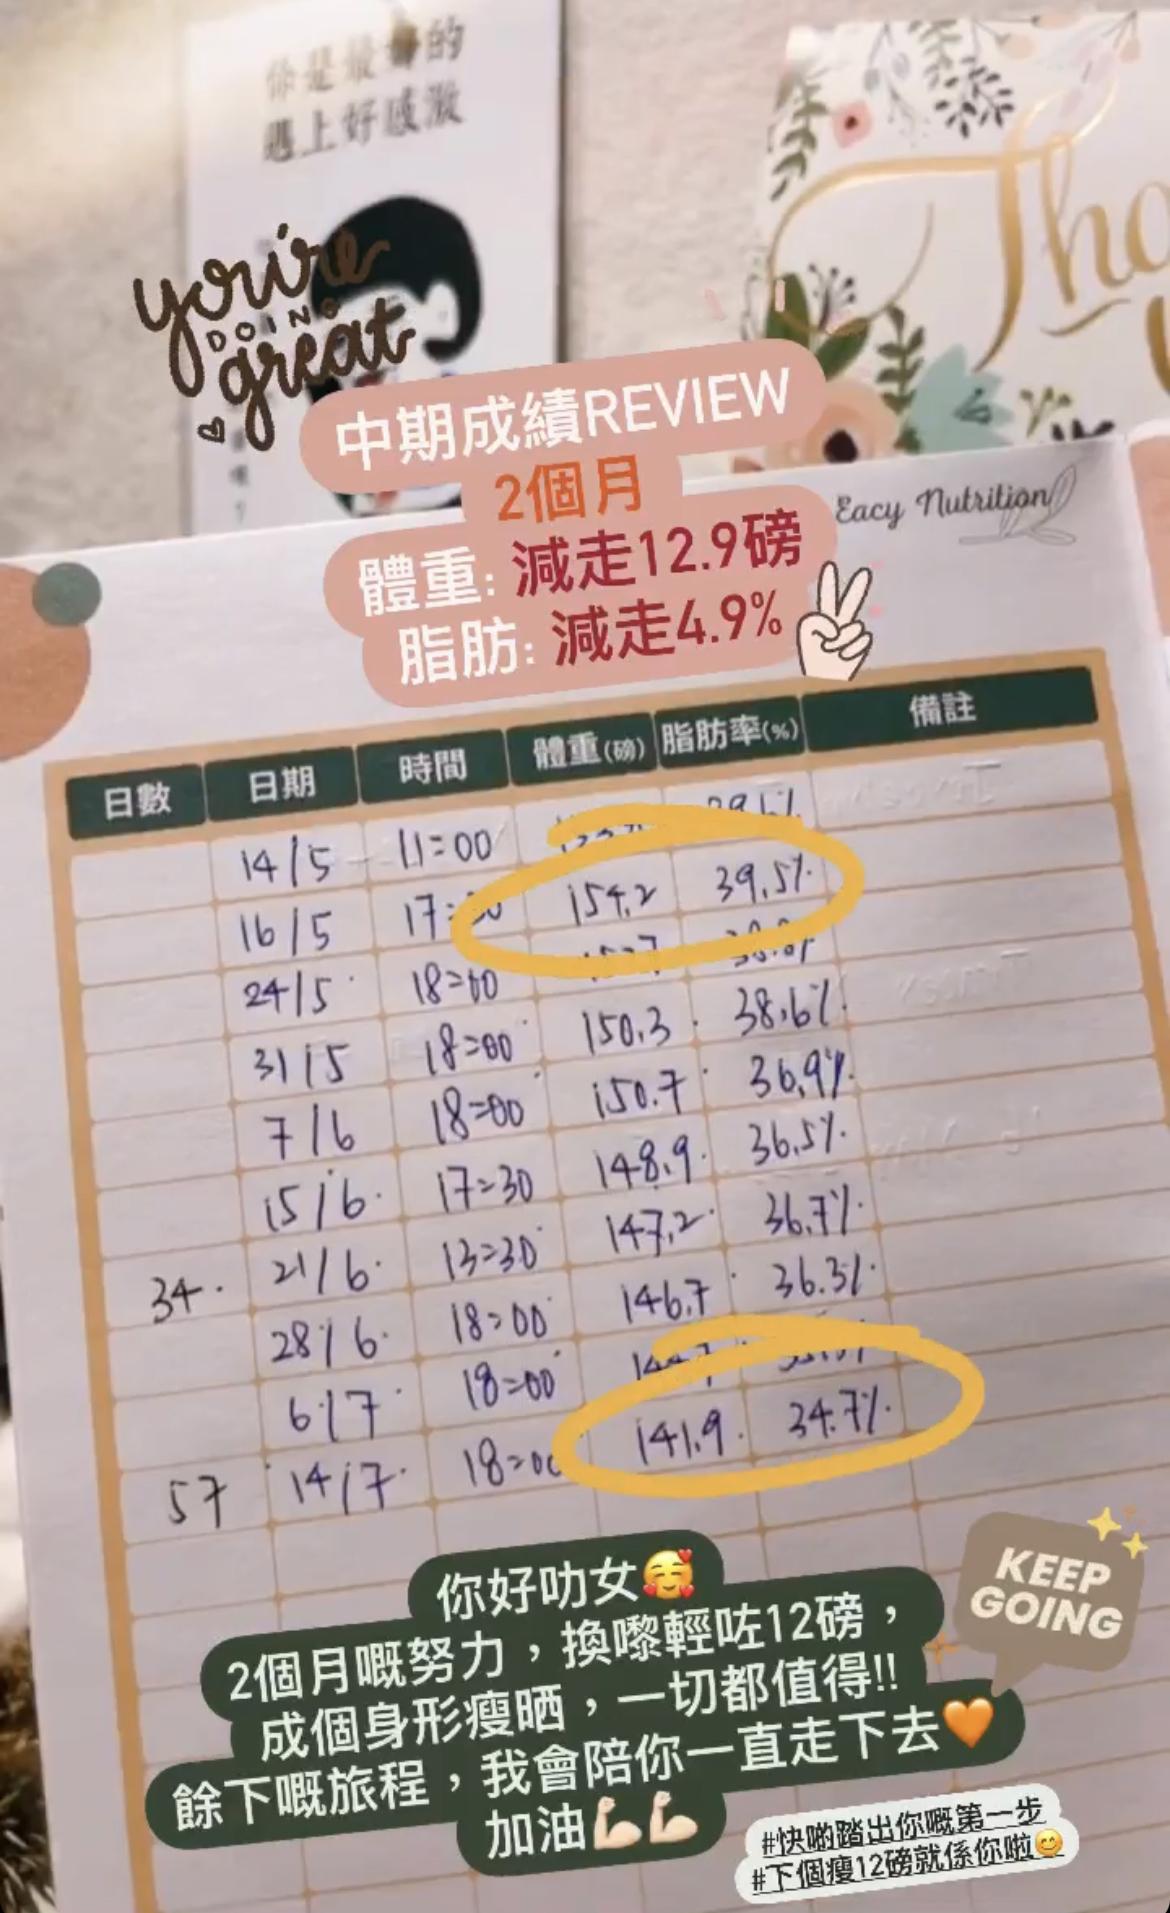 你是最棒的
遇上好感激
you're
DOING
great
Tha
中期成績REVIEW
2個月
體重: 減走12.9磅
脂肪: 減走4.9%
Eacy Nutrition
日數 日期 時間 體重(磅) 脂肪率(%) 備註
14/5 11=00
16/5 17:30 154.2 39.5%
24/5 18=00
31/5 18=00 150.3 38.6%
7/6 18=00 150.7 36.9%
15/6 17=30 148.9 36.5%
34 21/6 13=30 147.2 36.7%
28/6 18=00 146.7 36.3%
6/7 18=00
57 14/7 18=00 141.9 34.7%
KEEP
GOING
你好叻女🥰
2個月嘅努力，換嚟輕咗12磅，
成個身形瘦晒，一切都值得!!
餘下嘅旅程，我會陪你一直走下去🧡
加油💪🏻💪🏻
#快啲踏出你嘅第一步
#下個瘦12磅就係你啦😊